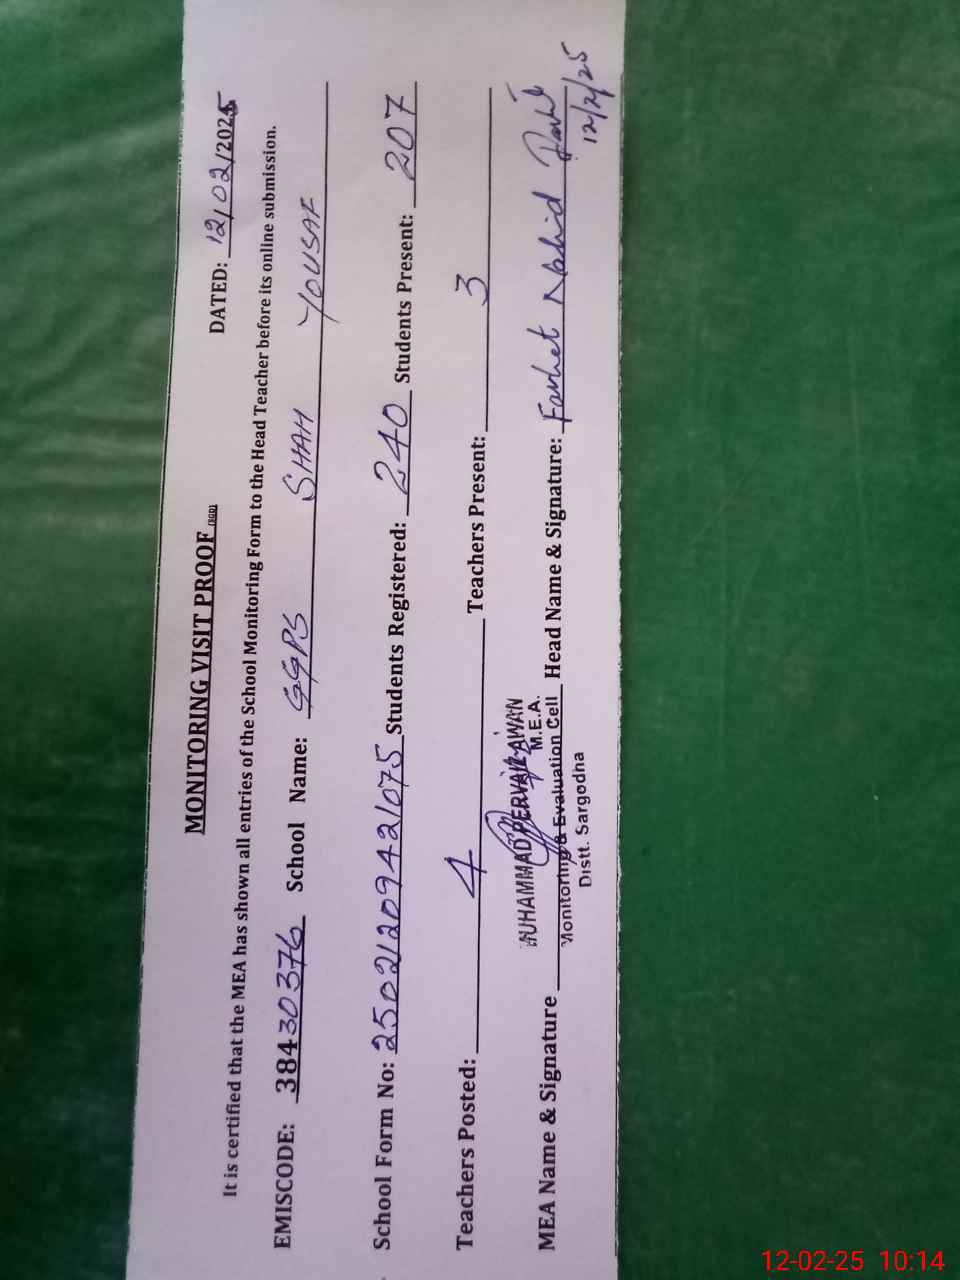 MONITORING VISIT PROOF (SGD)
DATED: 12/02/2025
It is certified that the MEA has shown all entries of the School Monitoring Form to the Head Teacher before its online submission.
EMISCODE: 38430376 School Name: GGPS SHAH YOUSAF
School Form No: 25021209421075 Students Registered: 240 Students Present: 207
Teachers Posted: 4 Teachers Present: 3
MUHAMMAD PERVAIZ AWAN
M.E.A.
MEA Name & Signature Head Name & Signature: Farhet Nahid
Monitoring & Evaluation Cell
12/2/25
Distt. Sargodha
12-02-25 10:14